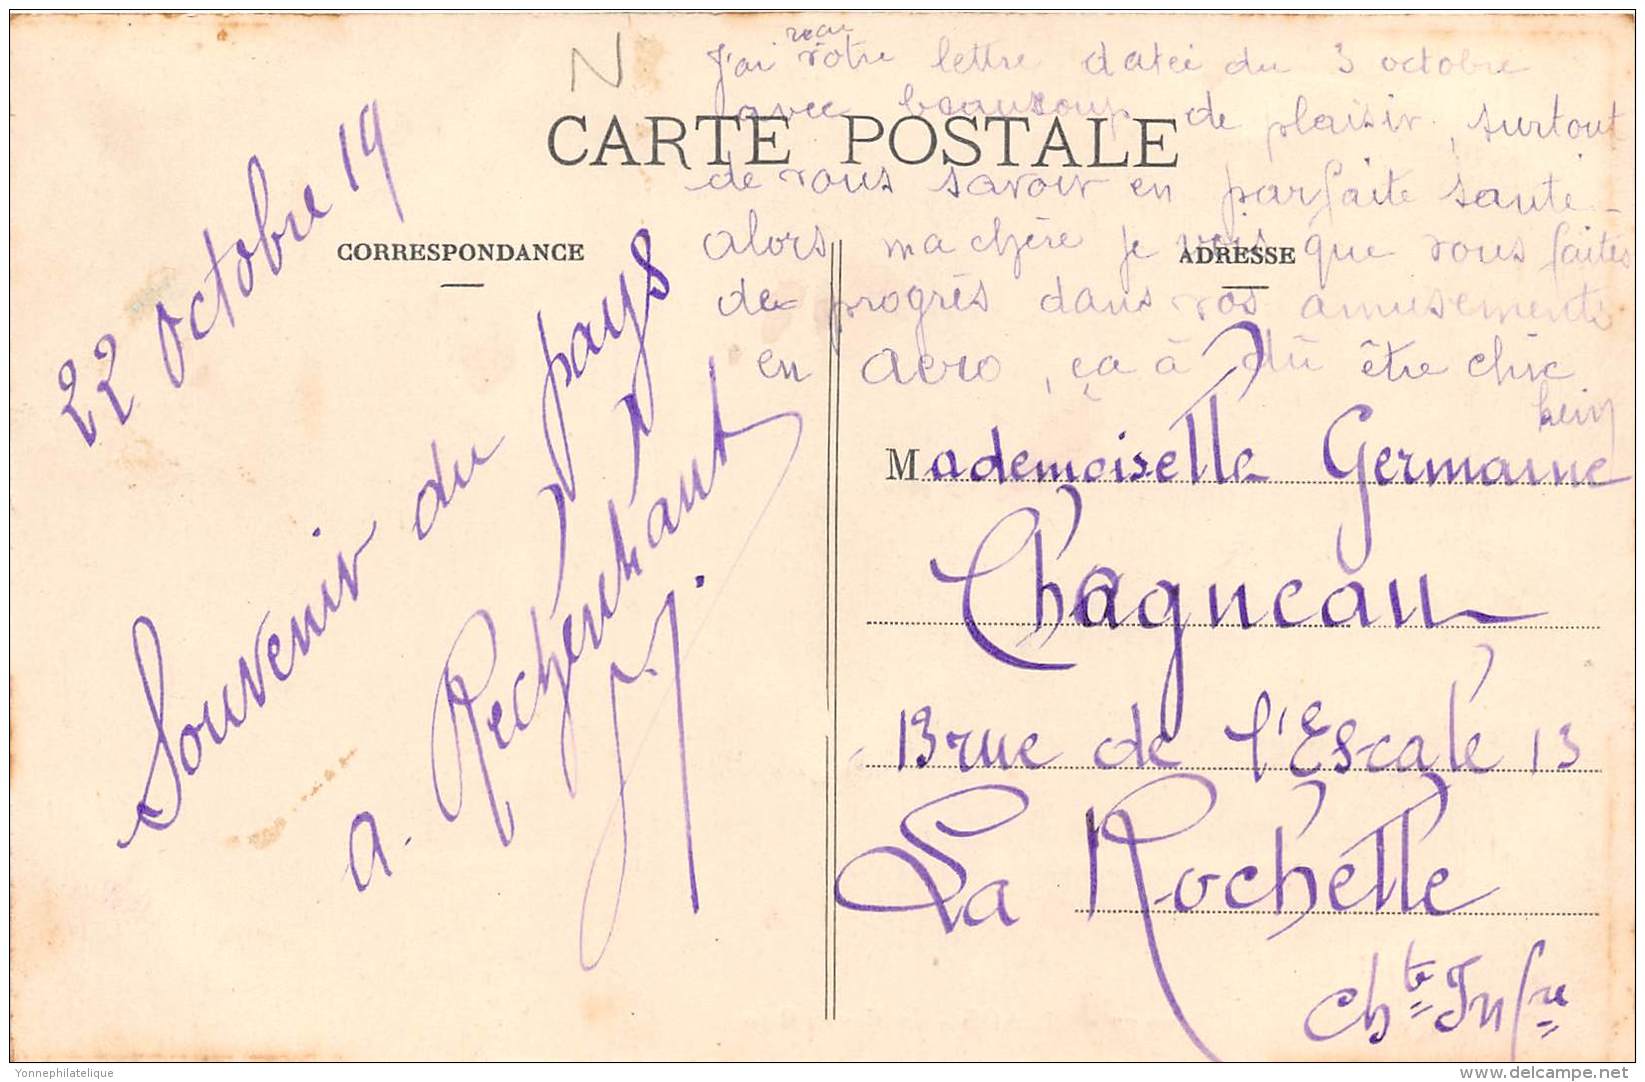 N
reçu
J'ai votre lettre datée du 3 octobre
avec beaucoup de plaisir, surtout
CARTE POSTALE
de vous savoir en parfaite santé -
alors ma chère je vois que vous faites
CORRESPONDANCE
ADRESSE
des progrès dans vos amusements
en aero, ça à dû être chic
hein
22 octobre 19
Souvenir du pays
A. Rechenchant
Mademoiselle Germaine
Chagneau
13 rue de l'Escale 13
La Rochelle
Chte Infre
Yonnephilatelique
delcampe.net